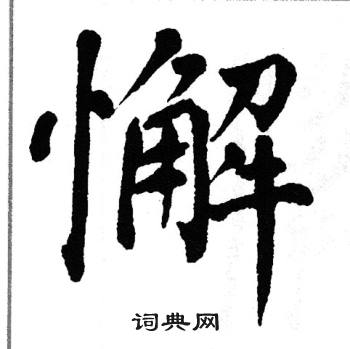 懈
词典网